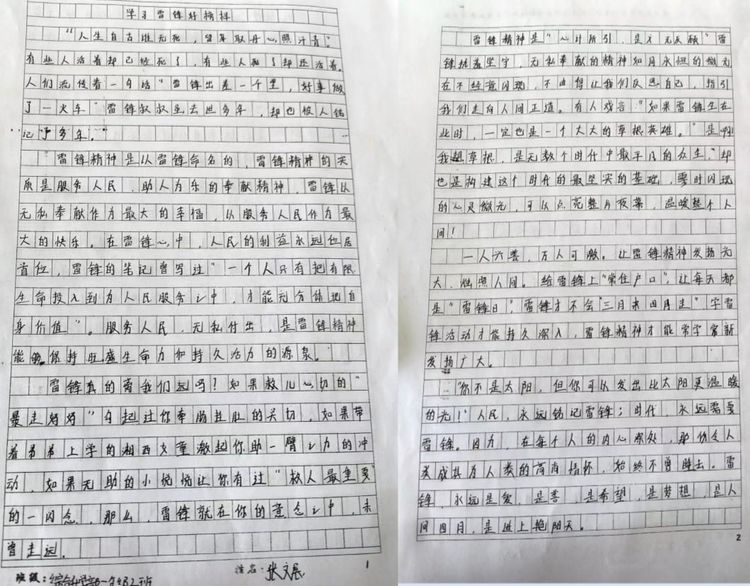 学习雷锋好榜样
“人生自古谁无死，留取丹心照汗青。”
有些人活着却已经死了，有些人死了却还活着。
人们流传着一句话“雷锋出差一千里，好事做
了一火车”雷锋叔叔至去世多年，却也被人铭
记了多年。”
“雷锋精神是以雷锋命名的，雷锋精神的实
质是服务人民，助人为乐的奉献精神，雷锋以
无私奉献作为最大的幸福，以服务人民作为最
大的快乐。在雷锋心中，人民的利益永远位居
首位，雷锋的笔记曾写过“一个人只有把有限
生命投入到为人民服务之中，才能充分体现自
身价值”。服务人民，无私付出，是雷锋精神
能够保持旺盛生命力和持久活力的源泉。
雷锋真的离我们远吗？如果救儿心切的“
最美妈妈”勾起过你牵肠挂肚的关切，如果带
着弟弟上学的湘西女童激起你助一臂之力的冲
动，如果无助的小悦悦让你有过“救人最重要
的一闪念，那么，雷锋就在你的意念之中，未
曾走远。
1
班级：
签名：张文辰
雷锋精神是“心之所引，是才无反顾”雷
锋的坚守，无私奉献的精神如月永恒的微光
在不经意闪现，不由得让我们反思自己，指引
我们走向人间正道。有人戏言“如果雷锋生在
此时，一定也是一个大大的草根英雄。”是啊
我想草根，是无数个时代中最平凡的众生，却
也是构建这个时代的最坚实的基础，霎时闪现
的心灵微光，可以点亮整片夜幕，温暖整个人
间！
一人兴善，万人可激。让雷锋精神发扬光
大，灿照人间。给雷锋上“常住户口”，让每天都
是“雷锋日”，雷锋才不会三月来四月走”学雷
锋活动才能持久深入，雷锋精神才能常学常新
发扬广大。
“你不是太阳，但你可以发出比太阳更温暖
的光！”人民，永远铭记雷锋；时代，永远需要
雷锋。因为，在每个人的内心深处，那份令人
类成其为人类的高尚情怀，始终不曾睡去。雷
锋，永远是爱，是善，是希望，是梦想，是人
间四月，是世上艳阳天。
2